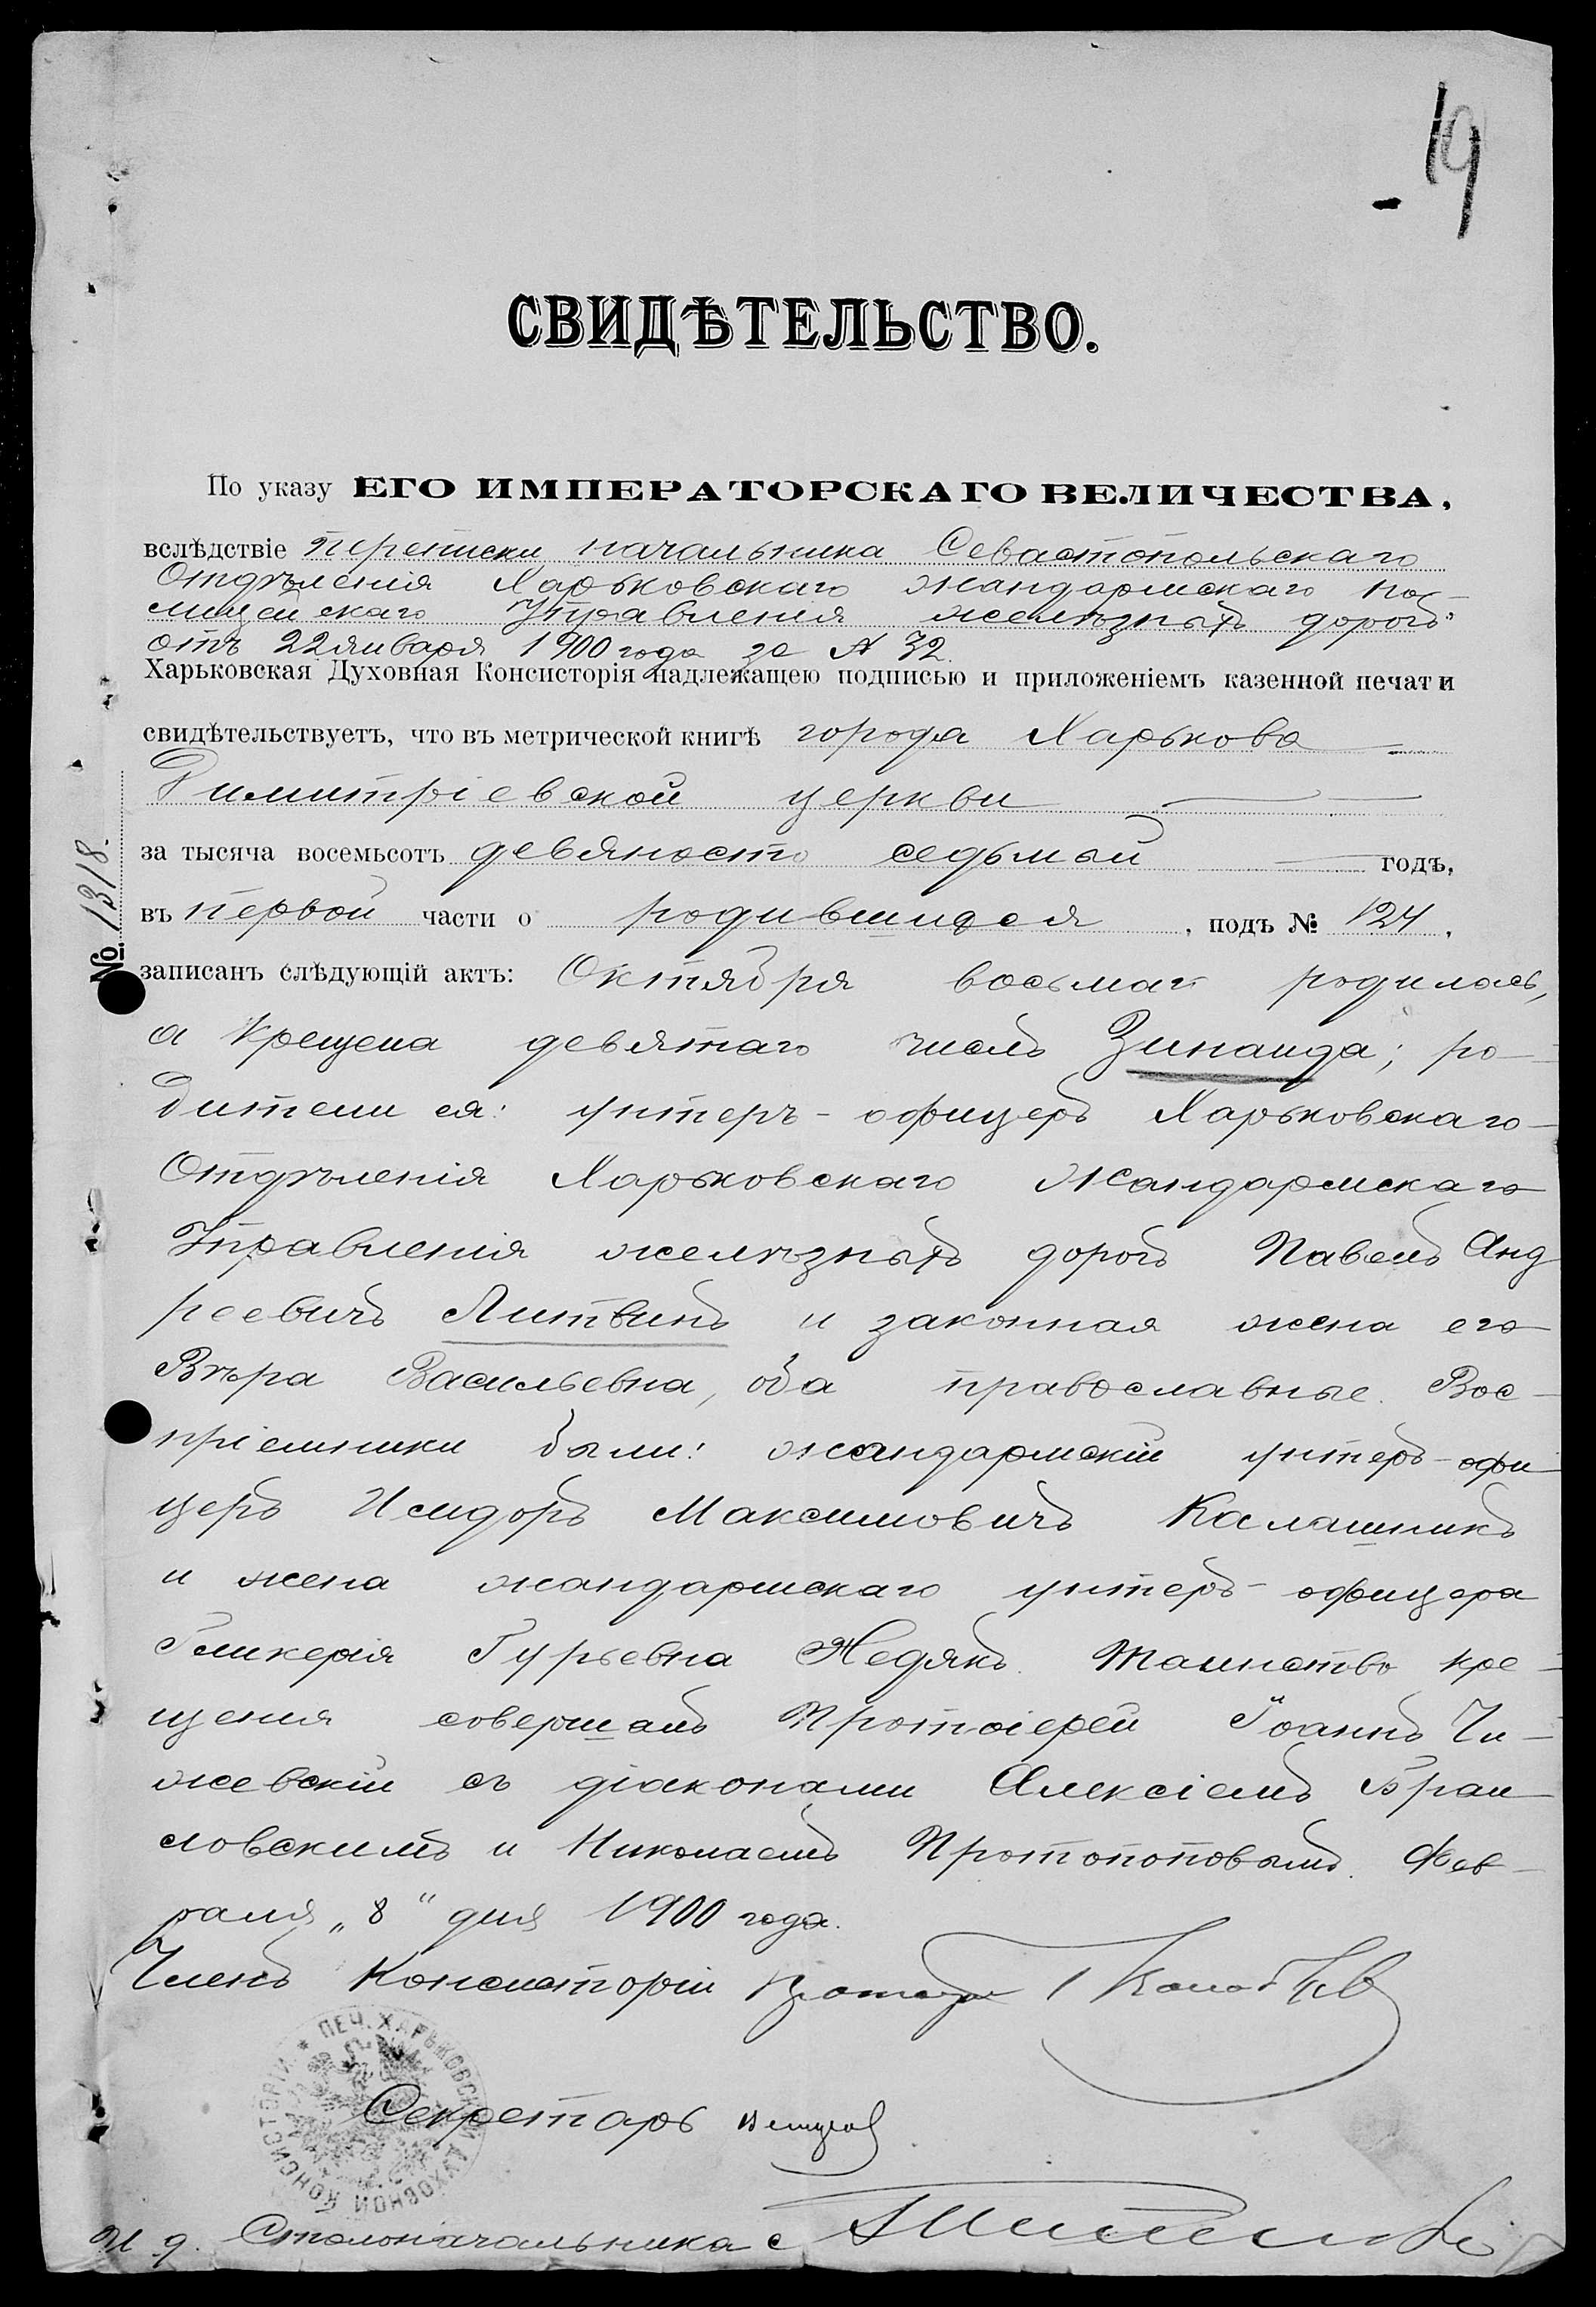 19
СВИДѢТЕЛЬСТВО.
По указу ЕГО ИМПЕРАТОРСКАГО ВЕЛИЧЕСТВА,
вслѣдствіе переписки начальника Севастопольскаго
Отдѣленія Харьковскаго жандармскаго по-
лицейскаго Управленія желѣзныхъ дорогъ
отъ 22 января 1900 года за № 32.
Харьковская Духовная Консисторія надлежащею подписью и приложеніемъ казенной печати
свидѣтельствуетъ, что въ метрической книгѣ города Харькова
Димитріевской церкви
за тысяча восемьсотъ девяносто седьмый годъ,
въ первой части о родившихся, подъ № 124,
записанъ слѣдующій актъ: Октября восьмаго родилась,
а крещена девятаго числа Зинаида; ро-
дители ея: унтеръ-офицеръ Харьковскаго
Отдѣленія Харьковскаго Жандармскаго
Управленія желѣзныхъ дорогъ Павелъ Анд
реевичъ Литвинъ и законная жена его
Вѣра Васильевна, оба православные. Вос-
пріемники были: жандармскій унтеръ-офи
церъ Исидоръ Максимовичъ Калашникъ
и жена жандармскаго унтеръ-офицера
Гликерія Гурьевна Недякъ. Таинство кре-
щенія совершалъ Протоіерей Іоаннъ Чи-
жевскій съ діаконами Алексіемъ Браи
ловскимъ и Николаемъ Протопоповымъ. Фев-
раля „8“ дня 1900 года.
Членъ Консисторіи
Секретарь
И. д. Столоначальника
№ 1318.
ПЕЧ. ХАРЬКОВСКОЙ ДУХОВНОЙ КОНСИСТОРІИ